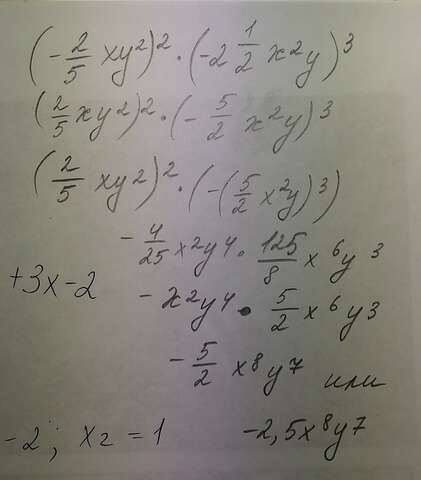 (-2/5 xy²)² · (-2 1/2 x²y)³
(2/5 xy²)² · (-5/2 x²y)³
(2/5 xy²)² · (-(5/2 x²y)³)
-4/25 x²y⁴ · 125/8 x⁶y³
+3x-2
-x²y⁴ · 5/2 x⁶y³
-5/2 x⁸y⁷ или
-2; x₂ = 1
-2,5x⁸y⁷